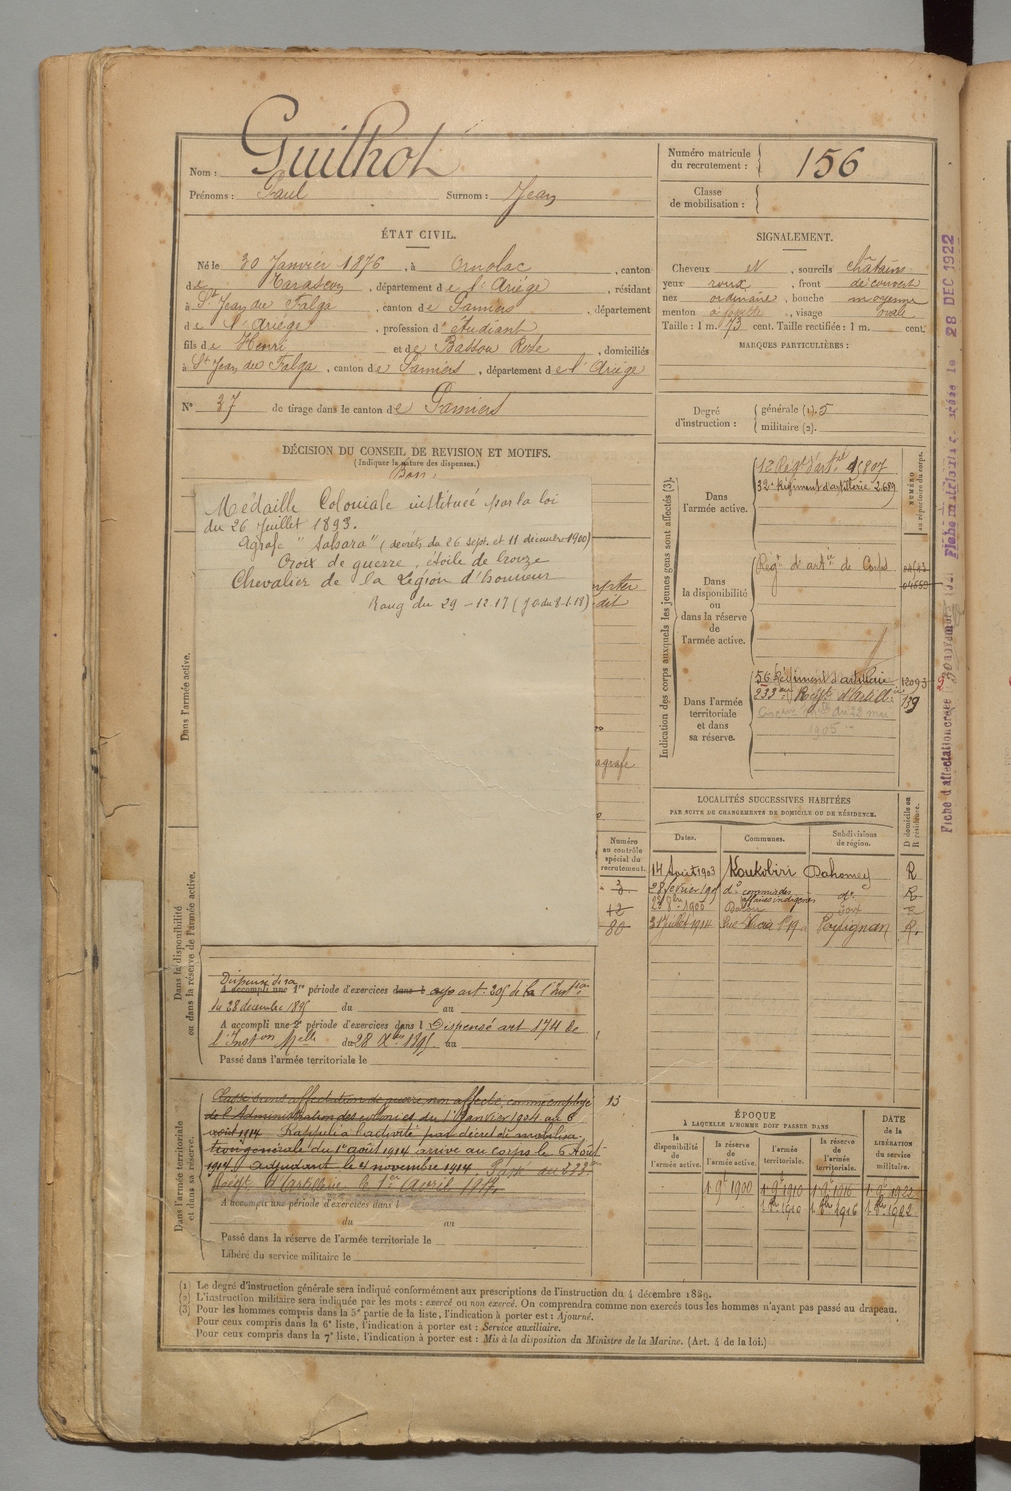 Nom : Guilhot
Prénoms : Paul Surnom : Jean
Numéro matricule du recrutement : 156
Classe de mobilisation :
ÉTAT CIVIL.
Né le 30 Janvier 1876, à Ornolac, canton
de Tarascon, département de l'Ariège, résidant
à St Jean du Falga, canton de Pamiers, département
de l'Ariège, profession d'étudiant
fils de Henri et de Rose, domiciliés
à St Jean du Falga, canton de Pamiers, département de l'Ariège
N° 37 de tirage dans le canton de Pamiers
SIGNALEMENT.
Cheveux N, sourcils châtains
yeux roux, front découvert
nez ordinaire, bouche moyenne
menton à fossette, visage ovale
Taille : 1 m. 73 cent. Taille rectifiée : 1 m. cent.
MARQUES PARTICULIÈRES :
Degré d'instruction : générale (1). 5
militaire (2).
DÉCISION DU CONSEIL DE REVISION ET MOTIFS.
(Indiquer la nature des dispenses.)
Bon
Médaille Coloniale instituée par la loi
du 26 Juillet 1893.
Agrafe "Sahara" (décrets du 26 sept. et 11 décembre 1900)
Croix de guerre, étoile de bronze
Chevalier de la Légion d'honneur
Rang du 29-12-17 (JO du 8-1-18)
agrafe
Dans l'armée active.
Dans la disponibilité
ou dans la réserve de l'armée active.
Dans l'armée territoriale
et dans sa réserve.
Indication des corps auxquels les jeunes gens sont affectés (3).
NUMÉRO
au répertoire du corps.
Dans
l'armée active.
12 Régt d'artie 807
32e Régiment d'artillerie 2.689
Dans
la disponibilité
ou
dans la réserve
de
l'armée active.
Régt d'artie de Corps
Dans l'armée
territoriale
et dans
sa réserve.
56 Régiment d'artillerie 12093
233eme Régt d'Artillie 159
du 22 mai
1905
Fiche d'affectation créée le 28 DEC 1922
LOCALITÉS SUCCESSIVES HABITÉES
PAR SUITE DE CHANGEMENTS DE DOMICILE OU DE RÉSIDENCE.
Dates. Communes. Subdivisions de région. D domicile ou R résidence.
14 Août 1903 Koukobiri Dahomey R
28 février 190 do commis des affaires indigènes do R
31 Juillet 1914 Perpignan R.
Numéro
au contrôle
spécial du
recrutement.
3
12
80
Dispensé de sa
A accompli une 1re période d'exercices dans l art. 205 de la l'Instion
du 28 décembre 1895 du au
A accompli une 2e période d'exercices dans l Dispensé art 174 de
l'Inston Melle du 28 Xbre 1895 au
Passé dans l'armée territoriale le
Classé sans affectation de guerre non affecté, comme employé
de l'Administration des colonies du 1er Janvier 1904 au 6
août 1914 Rappelé à l'activité par décret de mobilisa-
tion générale du 1er août 1914 arrivé au corps le 6 Août
1914. Adjudant le 4 novembre 1914. Passé au 233me
Régt d'Artillerie le 1er Avril 1917.
13
A accompli une période d'exercices dans l
du au
Passé dans la réserve de l'armée territoriale le
Libéré du service militaire le
ÉPOQUE
à LAQUELLE L'HOMME DOIT PASSER DANS
la disponibilité de l'armée active. la réserve de l'armée active. l'armée territoriale. la réserve de l'armée territoriale.
DATE de la LIBÉRATION du service militaire.
1 9e 1900 1 9e 1910 1 9e 1916 1 9e 1922
1 8bre 1910 1 8bre 1916 1 8bre 1922
(1) Le degré d'instruction générale sera indiqué conformément aux prescriptions de l'instruction du 4 décembre 1889.
(2) L'instruction militaire sera indiquée par les mots : exercé ou non exercé. On comprendra comme non exercés tous les hommes n'ayant pas passé au drapeau.
(3) Pour les hommes compris dans la 5e partie de la liste, l'indication à porter est : Ajourné.
Pour ceux compris dans la 6e liste, l'indication à porter est : Service auxiliaire.
Pour ceux compris dans la 7e liste, l'indication à porter est : Mis à la disposition du Ministre de la Marine. (Art. 4 de la loi.)